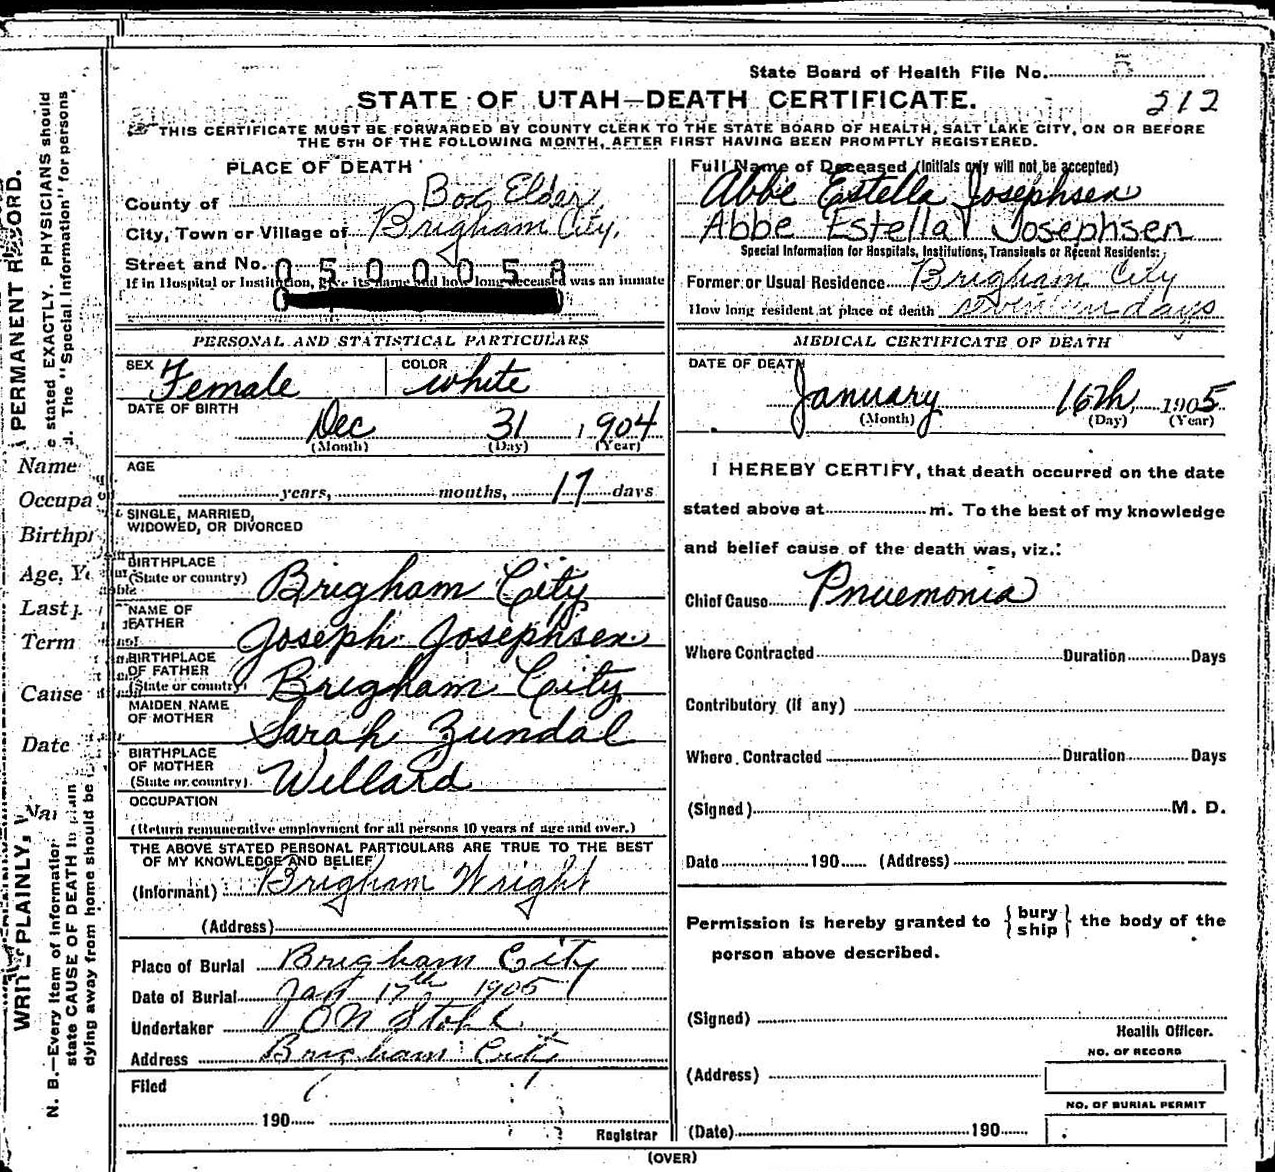 State Board of Health File No. 5
STATE OF UTAH—DEATH CERTIFICATE. 212
THIS CERTIFICATE MUST BE FORWARDED BY COUNTY CLERK TO THE STATE BOARD OF HEALTH, SALT LAKE CITY, ON OR BEFORE
THE 5TH OF THE FOLLOWING MONTH, AFTER FIRST HAVING BEEN PROMPTLY REGISTERED.
PLACE OF DEATH
County of Box Elder
City, Town or Village of Brigham City.
Street and No. 0 5 0 0 0 5 3
If in Hospital or Institution, give its name and how long deceased was an inmate
0
Full Name of Deceased (Initials only will not be accepted)
Abbe Estella Josephsen
Abbe Estella Josephsen
Special Information for Hospitals, Institutions, Transients or Recent Residents:
Former or Usual Residence Brigham City
How long resident at place of death days
PERSONAL AND STATISTICAL PARTICULARS
SEX Female COLOR white
DATE OF BIRTH
Dec 31 1904
(Month) (Day) (Year)
AGE
years, months, 17 days
SINGLE, MARRIED,
WIDOWED, OR DIVORCED
BIRTHPLACE
(State or country) Brigham City
NAME OF
FATHER Joseph Josephsen
BIRTHPLACE
OF FATHER
(State or country) Brigham City
MAIDEN NAME
OF MOTHER Sarah Zundal
BIRTHPLACE
OF MOTHER
(State or country) Willard
OCCUPATION
(Return remunerative employment for all persons 10 years of age and over.)
THE ABOVE STATED PERSONAL PARTICULARS ARE TRUE TO THE BEST
OF MY KNOWLEDGE AND BELIEF
(Informant) Brigham Wright
(Address)
Place of Burial Brigham City
Date of Burial Jan 17th 1905
Undertaker O N Stohl
Address Brigham City
Filed
190
Registrar
MEDICAL CERTIFICATE OF DEATH
DATE OF DEATH
January 16th, 1905
(Month) (Day) (Year)
I HEREBY CERTIFY, that death occurred on the date
stated above at m. To the best of my knowledge
and belief cause of the death was, viz.:
Chief Cause Pnuemonia
Where Contracted Duration Days
Contributory (if any)
Where Contracted Duration Days
(Signed) M. D.
Date 190 (Address)
Permission is hereby granted to {bury
ship} the body of the
person above described.
(Signed)
Health Officer.
NO. OF RECORD
(Address)
NO. OF BURIAL PERMIT
(Date) 190
(OVER)
PERMANENT RECORD.
WRITE PLAINLY,
stated EXACTLY. PHYSICIANS should
The "Special Information" for persons
N. B.—Every item of information
state CAUSE OF DEATH in plain
dying away from home should be
Name
Occupa
Birthp
Age, Y
Last
Term
Cause
Date